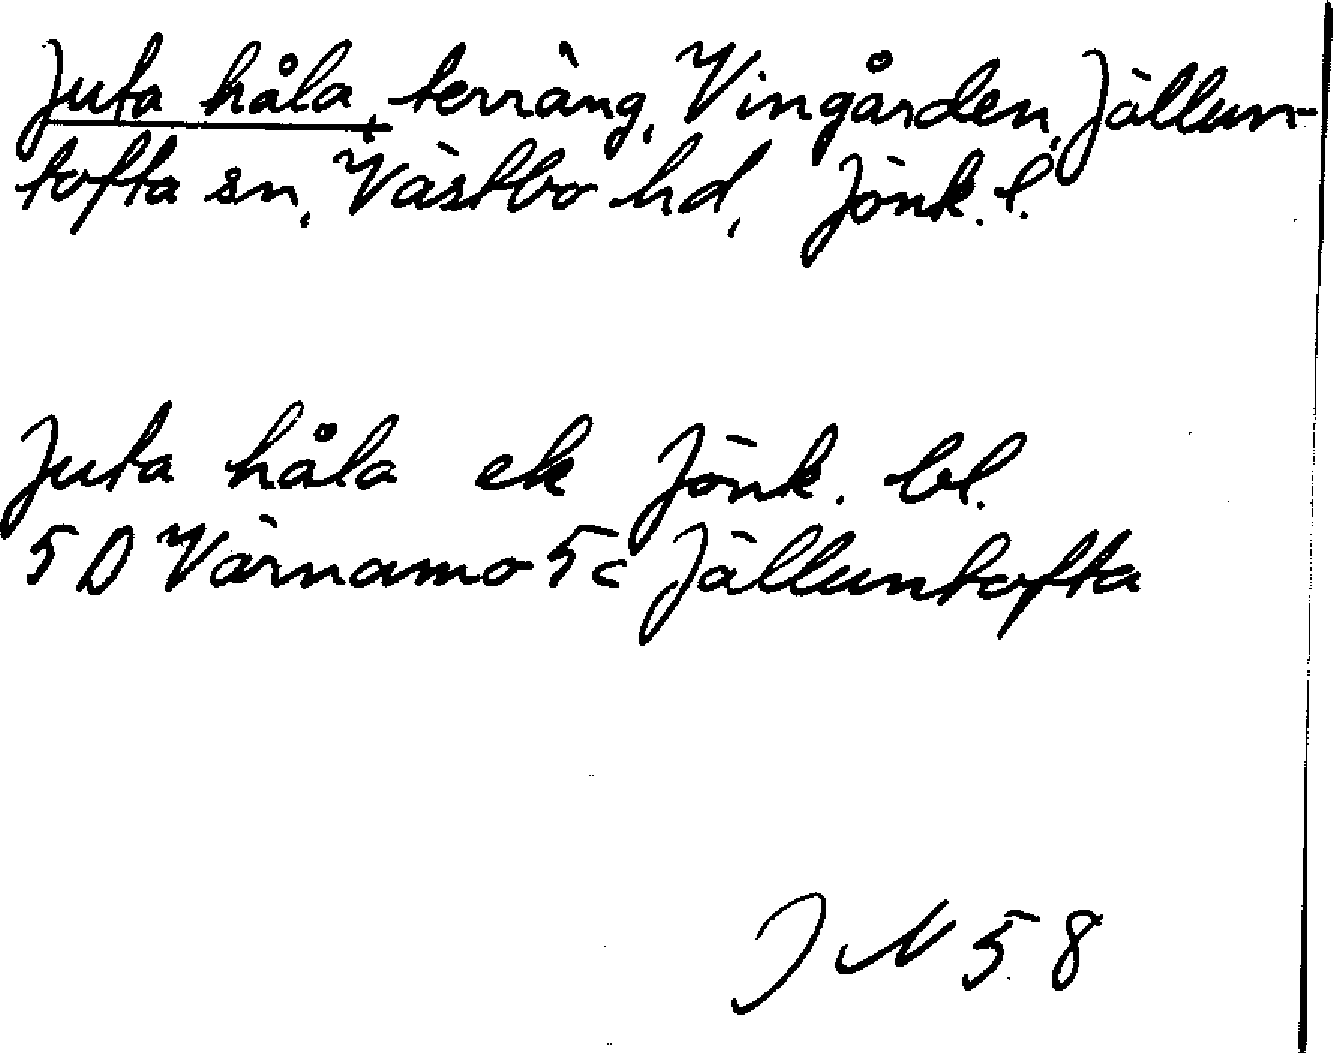 Juta håla, terräng, Vingården, Jällun-
tofta sn, Västbo hd, Jönk. l.
Juta håla ek Jönk. bl.
5D Värnamo 5c Jälluntofta
JN 58